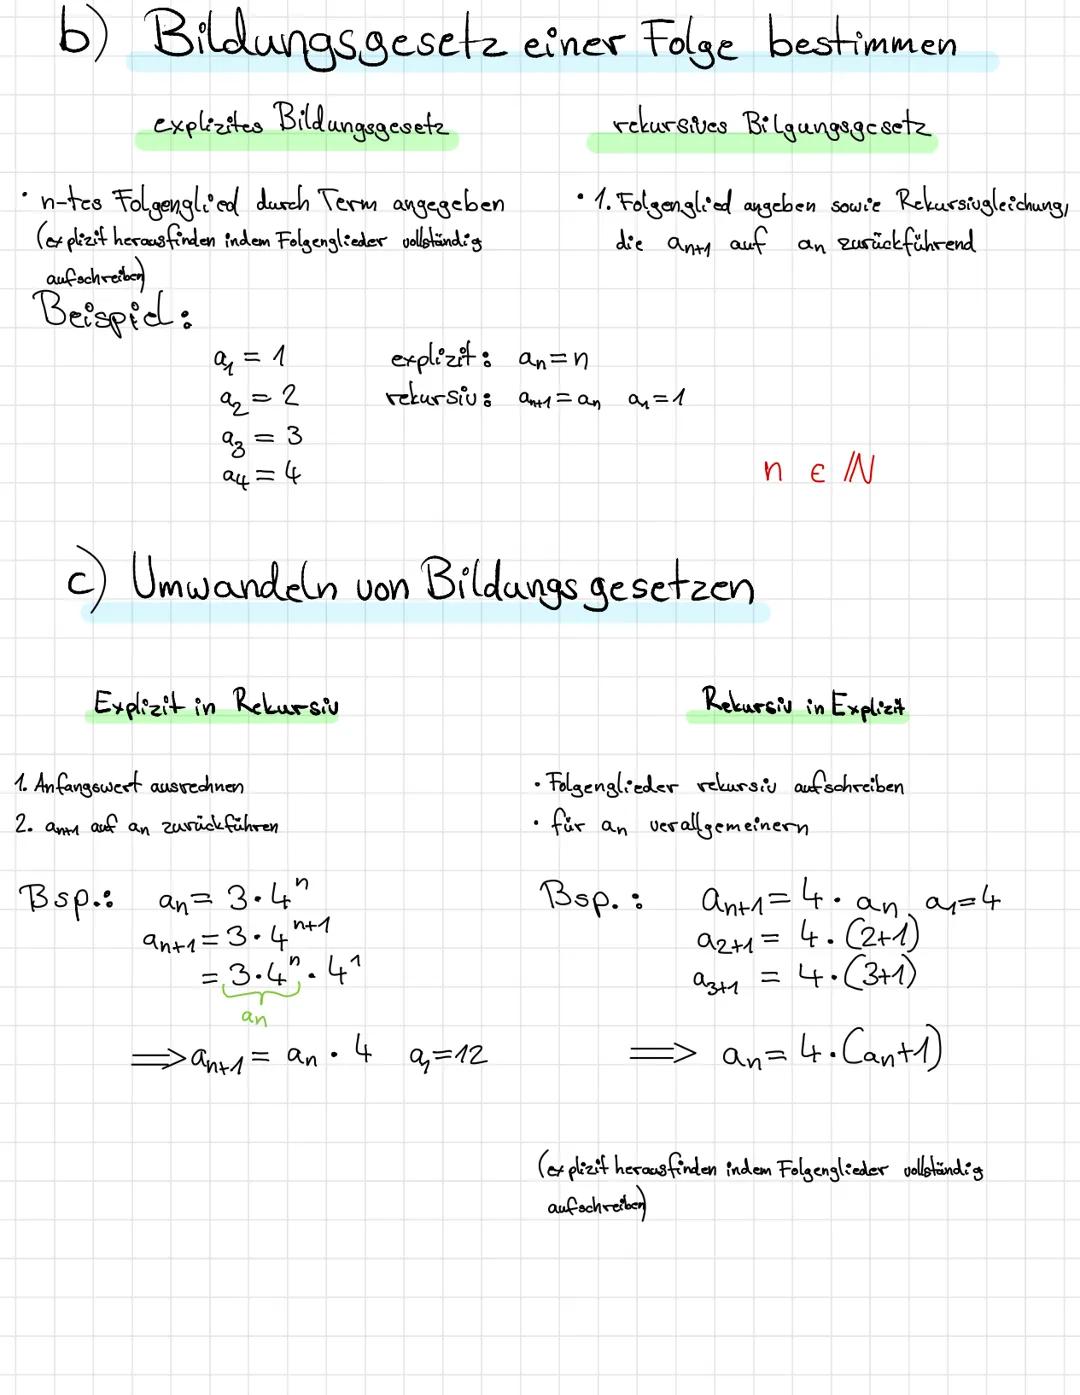 b) Bildungsgesetz einer Folge bestimmen
explizites Bildungsgesetz
rekursives Bilgungsgesetz
• n-tes Folgenglied durch Term angegeben
(explizit herausfinden indem Folgenglieder vollständig
aufschreiben)
• 1. Folgenglied angeben sowie Rekursivgleichung,
die an+1 auf an zurückführend
Beispiel:
a1 = 1 explizit: an=n
a2 = 2 rekursiv: an+1=an a1=1
a3 = 3
a4 = 4
n ∈ ℕ
c) Umwandeln von Bildungsgesetzen
Explizit in Rekursiv
1. Anfangswert ausrechnen
2. an+1 auf an zurückführen
Bsp.: an= 3·4^n
an+1=3·4^n+1
=3·4^n·4^1
an
⟹an+1= an·4 a1=12
Rekursiv in Explizit
• Folgenglieder rekursiv aufschreiben
• für an verallgemeinern
Bsp.: an+1=4·an, a1=4
a2+1= 4·(2+1)
a3+1 = 4·(3+1)
⟹ an=4·(an+1)
(explizit herausfinden indem Folgenglieder vollständig
aufschreiben)